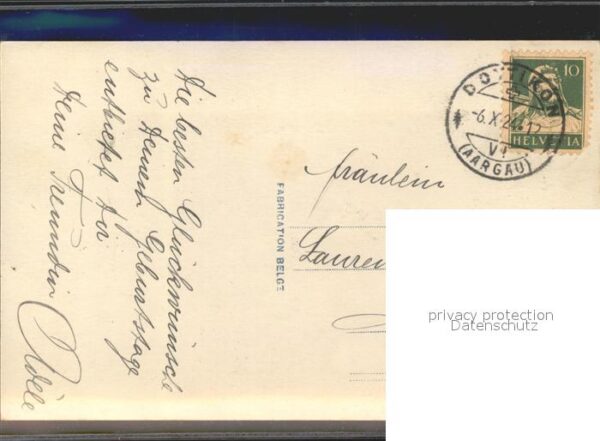 Die besten Glückwünsche
zu Deinem Geburtstage
entbietet Dir
Deine Freundin
Adèle
FABRICATION BELGE
Fräulein
Lauren
10
HELVETIA
DOTTIKON
-6.X.24.-17
VI
(AARGAU)
privacy protection
Datenschutz